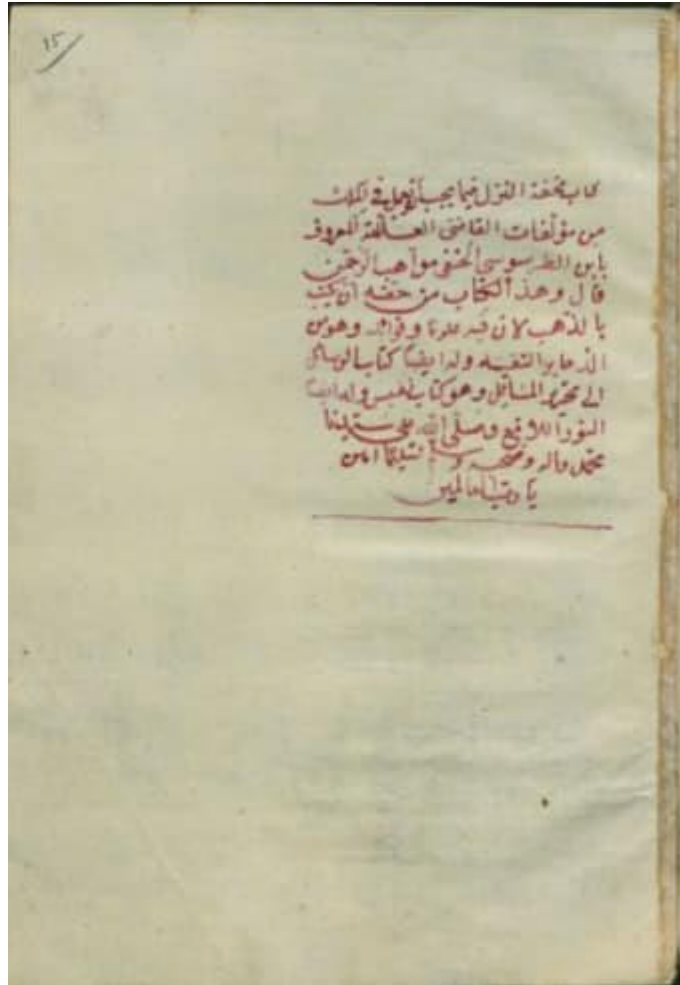 ١٥
كتاب تحفة الترك فيما يجب أن يعمل في الملك
من مؤلفات القاضى العلامة المعروف
بابن الطرسوسى الحنفى مواهب الرحمن
قال وهذا الكتاب من حقه ان يكتب
بالذهب لان فيه وفوائد وهو من
النفيسه وله ايضا كتاب الوسائل
الى تحرير المسائل وهو كتاب نفيس وله ايضا
النور اللامع وصلى الله على سيدنا
محمد واله وصحبه وسلم تسليما امين
يا رب العالمين